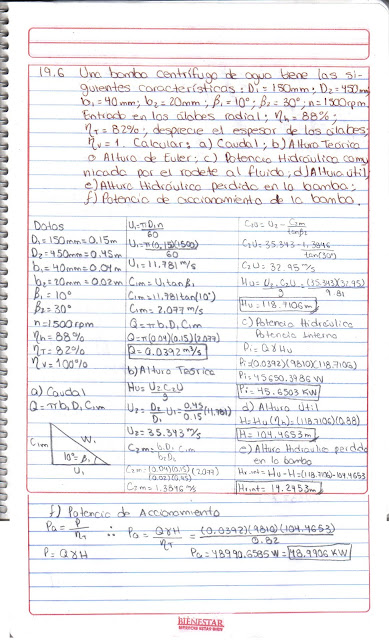 19.6 Una bomba centrífuga de agua tiene las si-
guientes características: D₁=150mm; D₂=450mm
b₁=40mm; b₂=20mm; β₁=10°; β₂=30°; n=1500rpm.
Entrada en los álabes radial; ηh=88%;
ηT=82%; desprecie el espesor de los álabes;
ηv=1. Calcular: a) Caudal; b) Altura Teórica
o Altura de Euler; c) Potencia Hidráulica comu
nicada por el rodete al fluido; d) Altura útil;
e) Altura Hidráulica perdida en la bomba;
f) Potencia de accionamiento de la bomba.
Datos
D₁=150mm=0.15m
D₂=450mm=0.45m
b₁=40mm=0.04m
b₂=20mm=0.02m
β₁=10°
β₂=30°
n=1500rpm
ηh=88%
ηT=82%
ηv=100%
a) Caudal
Q=πb₁D₁C₁m
C₁m
W₁
10°=β₁
U₁
U₁=πD₁n/60
U₁=π(0.15)(1500)/60
U₁=11.781m/s
C₁m=U₁tanβ₁
C₁m=11.781tan(10°)
C₁m=2.077m/s
Q=πb₁D₁C₁m
Q=π(0.04)(0.15)(2.077)
Q=0.0392m³/s
b) Altura Teórica
Hu=U₂C₂U/g
U₂=D₂/D₁ U₁=0.45/0.15(11.781)
U₂=35.343m/s
C₂m=b₁D₁C₁m/b₂D₂
C₂m=(0.04)(0.15)(2.077)/(0.02)(0.45)
C₂m=1.3846m/s
C₂U=U₂-C₂m/tanβ₂
C₂U=35.343-1.3846/tan(30°)
C₂U=32.95m/s
Hu=U₂C₂U/g=(35.343)(32.95)/9.81
Hu=118.7106m
c) Potencia Hidráulica
Potencia Interna
Pi=QγHu
Pi=(0.0392)(9810)(118.7106)
Pi=45650.3786W
Pi=45.6503KW
d) Altura Útil
H=Hu(ηh)=(118.7106)(0.88)
H=104.4653m
e) Altura Hidráulica perdida
en la bomba
Hr-int=Hu-H=118.7106-104.4653
Hr-int=14.2453m
f) Potencia de Accionamiento
Pa=P/ηT ∴ Pa=QγH/ηT=(0.0392)(9810)(104.4653)/0.82
P=QγH Pa=48990.6585W=48.9906KW
BIENESTAR